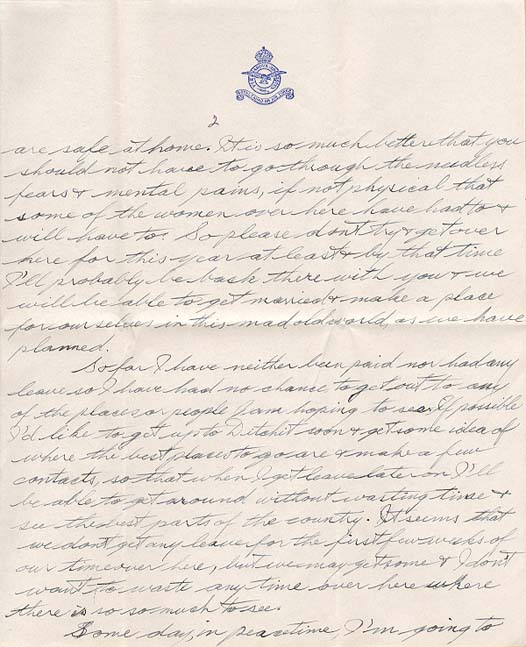 2
are safe at home. It is so much better that you
should not have to go through the needless
fears & mental pains, if not physical that
some of the women over here have had to &
will have to. So please don't try & get over
here for this year at least & by that time
I'll probably be back there with you & we
will be able to get married & make a place
for ourselves in this mad old world, as we have
planned.
So far I have neither been paid nor had any
leave so I have had no chance to get out to any
of the places or people I am hoping to see. If possible
I'd like to get up to Ditchit soon & get some idea of
where the best places to go are & make a few
contacts, so that when I get leave later on I'll
be able to get around without wasting time &
see the best parts of the country. It seems that
we don't get any leave for the first few weeks of
our time over here, but we may get some & I don't
want to waste any time over here where
there is so so much to see.
Some day, in peacetime, I'm going to